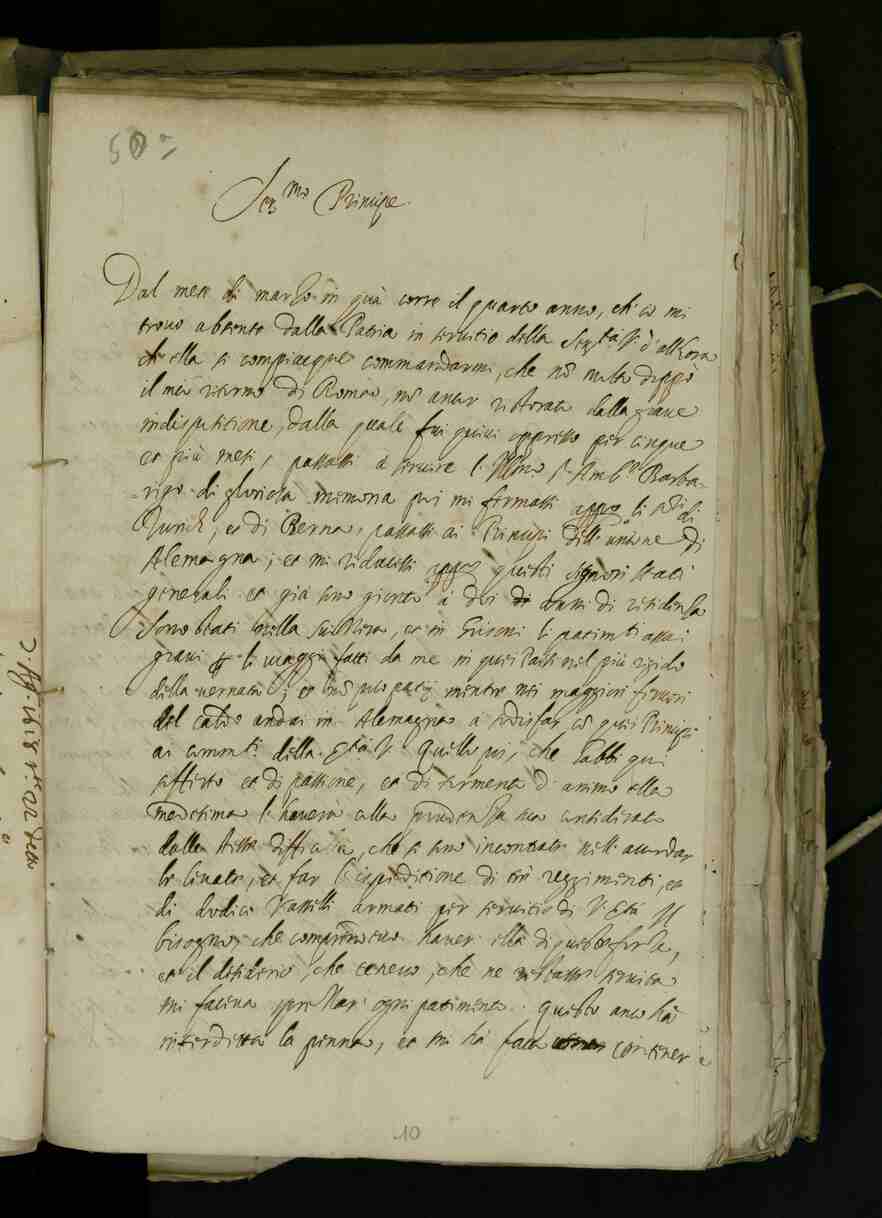 50
Ser.mo Principe
Dal mese di marzo in quà corre il quarto anno, ch'io mi
trovo absente dalla Patria in servitio della Ser.tà V. d'allhora
ch'ella si compiacque commandarmi, che nõ molto doppò
il mio ritorno di Roma, nõ ancor ristorato dalla grave
indispositione, dalla quale fui quivi oppresso per cinque
et più mesi, passassi à servire l'Illmo s.r Amb.r Barba-
rigo di gloriosa memoria poi mi fermassi appo li sri di
Zurich, et di Berna, passassi ai Principi dell'unione di
Alemagna; et mi riducessi appo questi signori stati
generali et già sono gionto à doi anni di residenza
Sono stati nella Suizzera, et in Grisoni li patimti assai
gravi p li viaggi fatti da me in quei Paesi nel più rigido
della vernata; et nõ poco patij mentre nei maggiori fervori
del caldo andai in Alemagna à sodisfar cõ quei Principi
ai comm.ti della Stà V. Quello poi, che habbi qui
sofferto et di passione, et di tormento d'animo ella
medesima l'haverà colla prudenza sua considerato
dalle stesse difficoltà, che si sono incontrate nell'accordar
le levate, et far l'espeditione di tre reggimenti, et
di dodici Vasselli armati per servitio di V. Stà Il
bisogno, che comprendevo haver ella di queste forze,
et il desiderio, che tenevo, che ne restasse servita
mi faceva sprezzar ogni patimento. Questo anco hà
ritardata la penna, et mi hà fatto contener
10